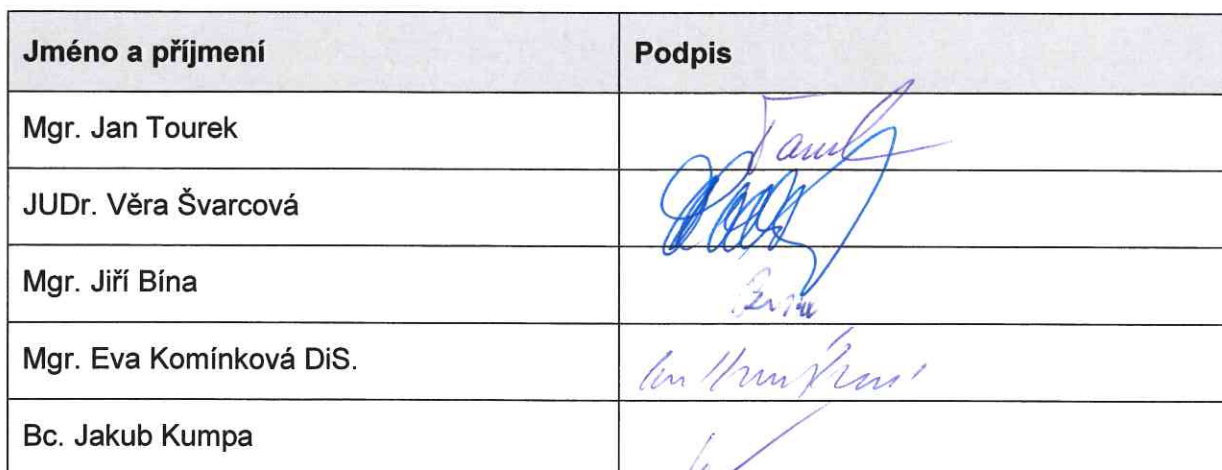 Jméno a příjmení Podpis
Mgr. Jan Tourek
JUDr. Věra Švarcová
Mgr. Jiří Bína
Mgr. Eva Komínková DiS.
Bc. Jakub Kumpa